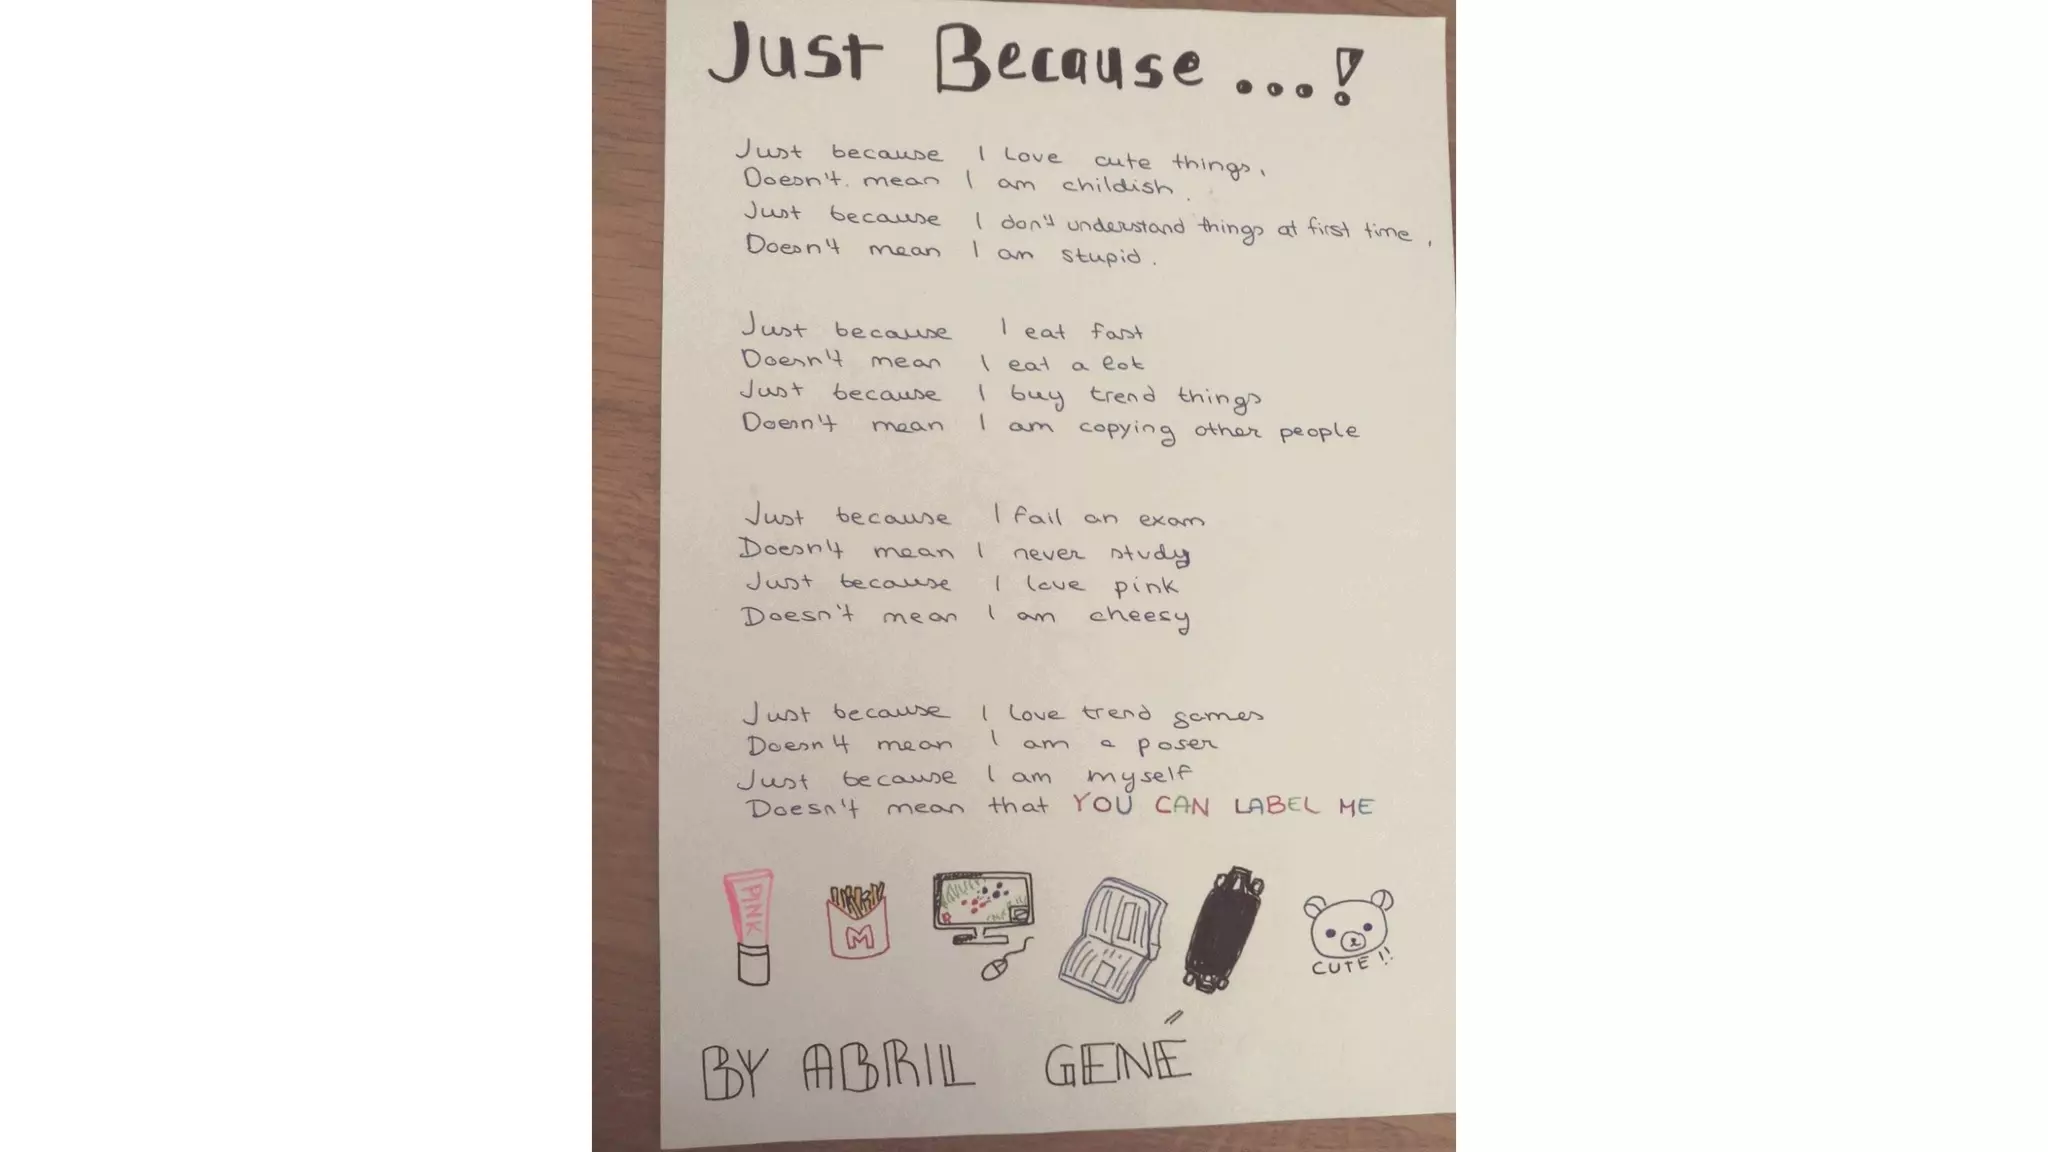 Just Because...!
Just because I love cute things,
Doesn't mean I am childish.
Just because I don't understand things at first time,
Doesn't mean I am stupid.
Just because I eat fast
Doesn't mean I eat a lot
Just because I buy trend things
Doesn't mean I am copying other people
Just because I fail an exam
Doesn't mean I never study
Just because I love pink
Doesn't mean I am cheesy
Just because I love trend games
Doesn't mean I am a poser
Just because I am myself
Doesn't mean that YOU CAN LABEL ME
PINK
M
CUTE!!
BY ABRIL GENÉ